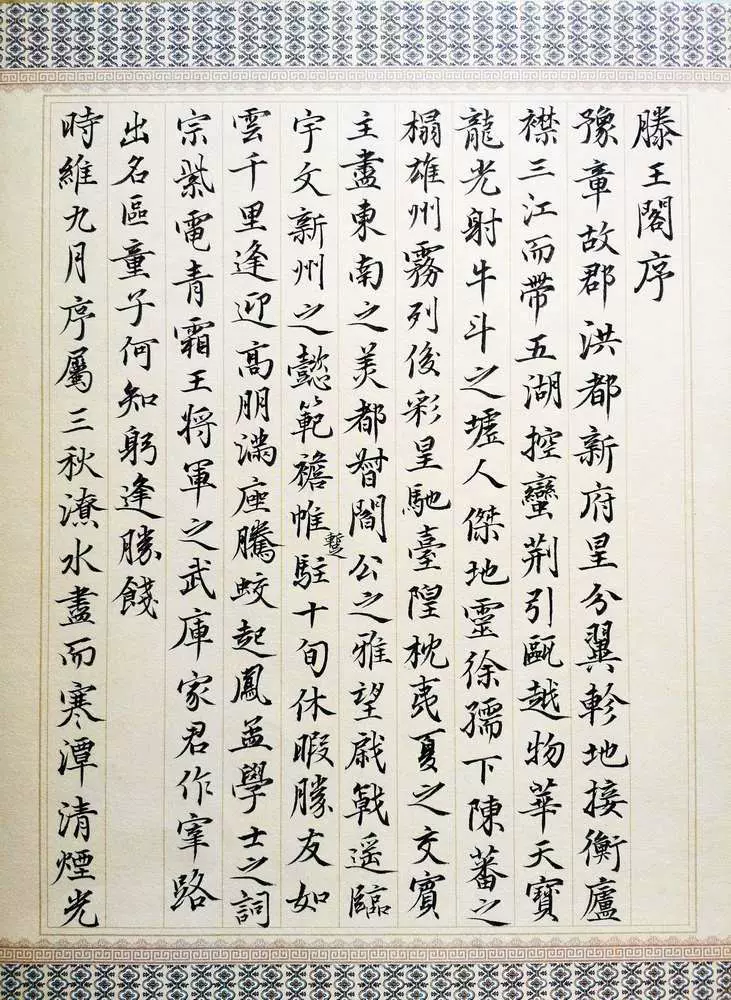 滕王閣序
豫章故郡洪都新府星分翼軫地接衡廬
襟三江而帶五湖控蠻荊引甌越物華天寶
龍光射牛斗之墟人傑地靈徐孺下陳蕃之
榻雄州霧列俊彩星馳臺隍枕夷夏之交賓
主盡東南之美都督閻公之雅望棨戟遥臨
宇文新州之懿範襜帷暫駐十旬休暇勝友如
雲千里逢迎高朋滿座騰蛟起鳳孟學士之詞
宗紫電青霜王將軍之武庫家君作宰路
出名區童子何知躬逢勝餞
時維九月序屬三秋潦水盡而寒潭清煙光